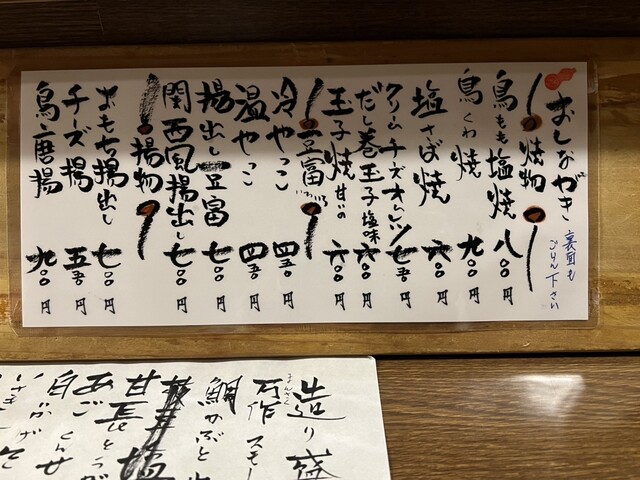 おしながき
裏面も
ごらん下さい
焼物
鳥もも塩焼 八〇〇円
鳥くわ焼 九〇〇円
塩さば焼 六〇〇円
クリームチーズオムレツ 七五〇円
だし巻玉子 塩味 六〇〇円
玉子焼 甘いの 六〇〇円
豆富いろいろ
冷やっこ 四五〇円
温やっこ 四五〇円
揚出し豆富 七〇〇円
関西風揚出し 七〇〇円
揚物
おもち揚出し 七〇〇円
チーズ揚 五五〇円
鳥唐揚 九〇〇円
造り盛
まんさく
万作スモー
鯛かぶと
甘長とうが
あご
白